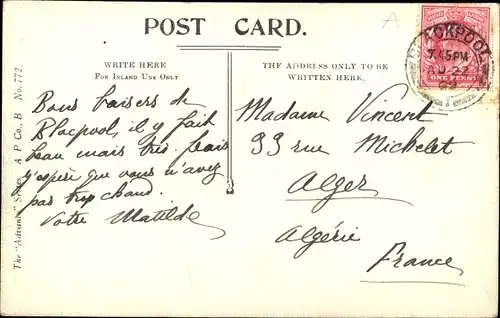 A
POST CARD.
WRITE HERE
FOR INLAND USE ONLY
THE ADDRESS ONLY TO BE
WRITTEN HERE.
BLACKPOOL
7.45PM
ONE PENNY
Bons baisers de
Blacpool, il y fait
beau mais très frais
j'espère que vous n'avez
pas trop chaud.
Votre Matilde
Madame Vincent
93 rue Michelet
Alger
Algérie
France
The "Advance" Series A. P. Co., B No. 772.